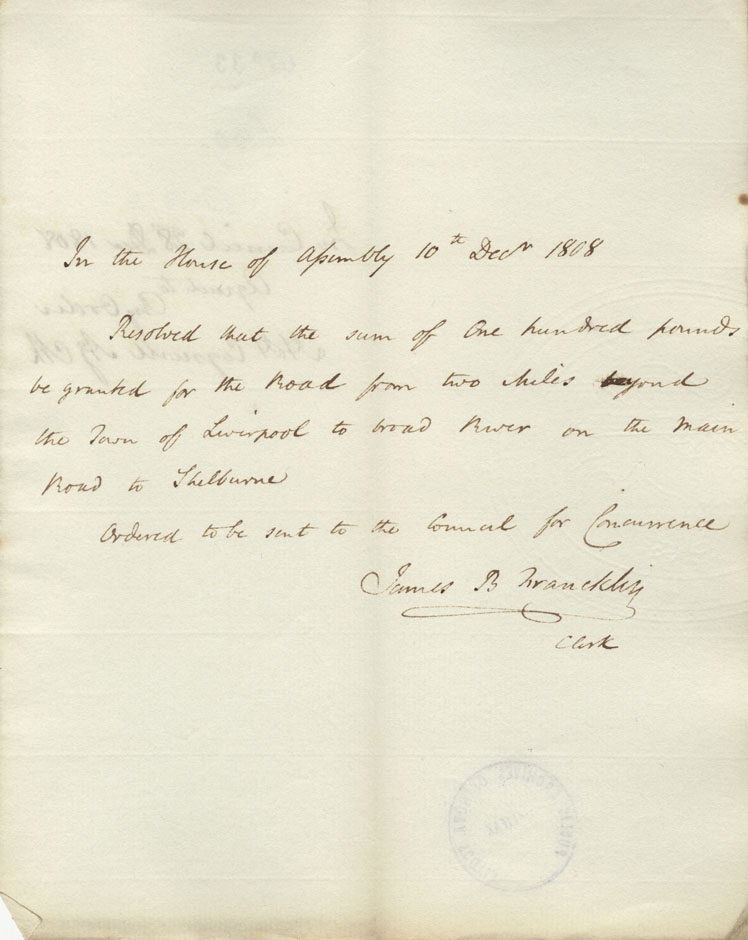 In the House of Assembly 10th Decr 1808
Resolved that the sum of One hundred pounds
be granted for the Road from two Miles beyond
the Town of Liverpool to broad River on the Main
Road to Shelburne
Ordered to be sent to the Council for Concurrence
James B Francklin
Clerk